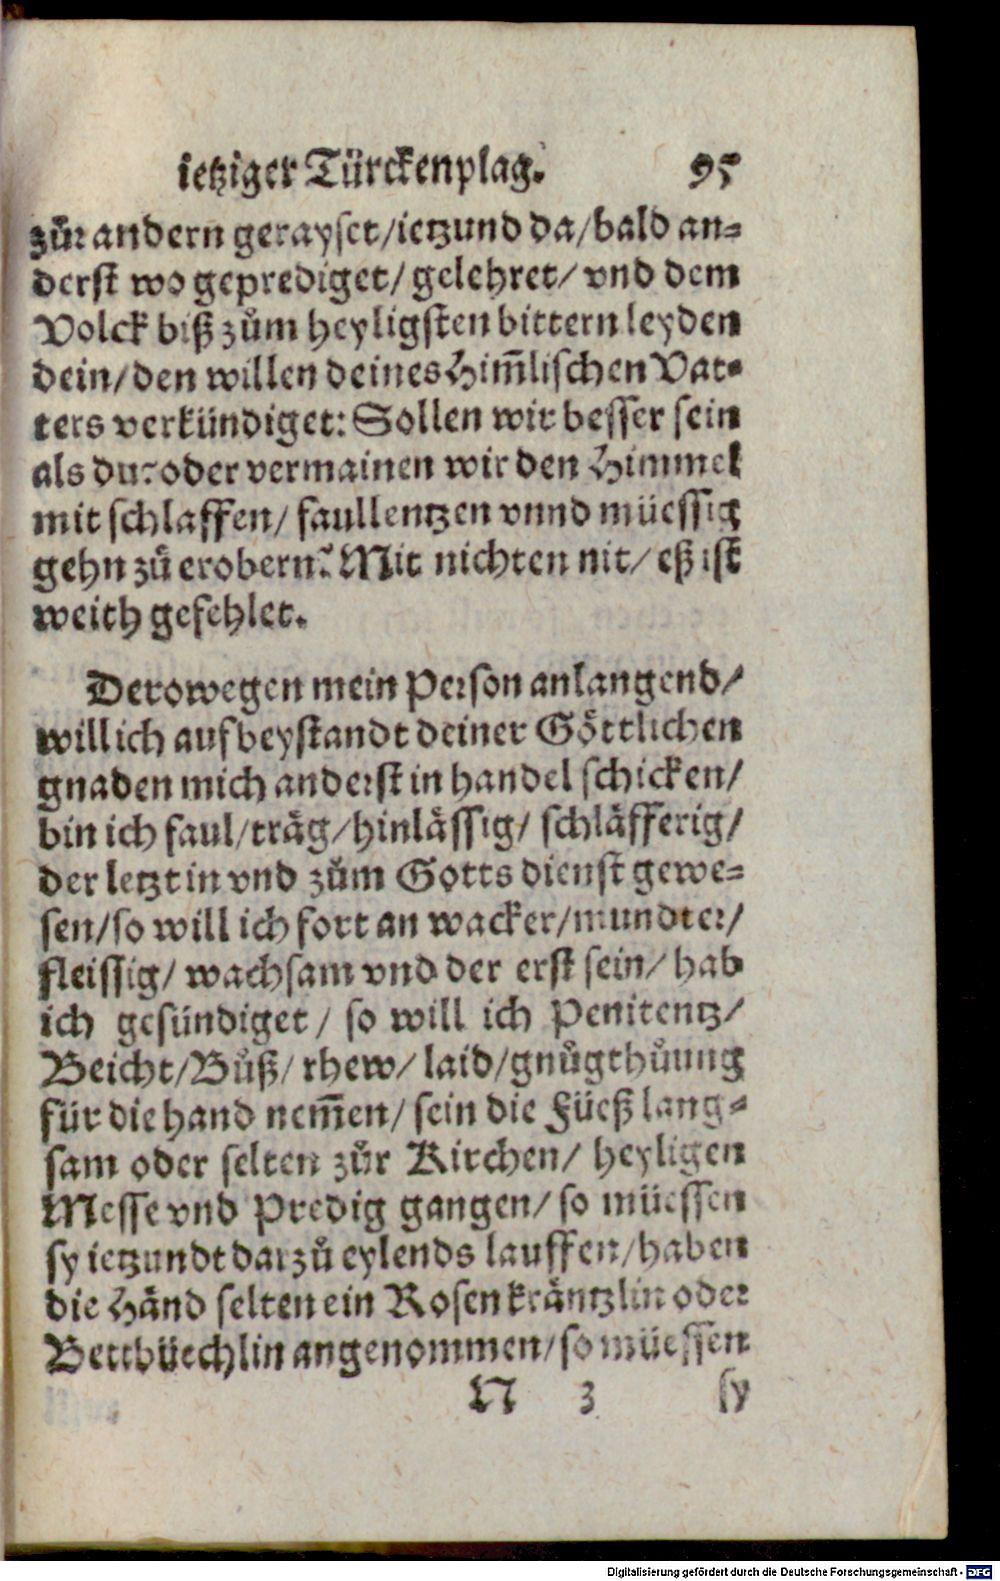 ietziger Türckenplag. 95
zůr andern gerayset/ietzund da/bald an-
derst wo geprediget/ gelehret/ vnd dem
Volck biß zům heyligsten bittern leyden
dein/den willen deines Him̃lischen Vat-
ters verkündiget: Sollen wir besser sein
als du? oder vermainen wir den Himmel
mit schlaffen/ faullentzen vnnd müessig
gehn zů erobern? Mit nichten nit/ eß ist
weith gefehlet.
Derowegen mein Person anlangend/
will ich auf beystandt deiner Göttlichen
gnaden mich anderst in handel schicken/
bin ich faul/träg/hinlässig/ schläfferig/
der letzt in vnd zům Gotts dienst gewe-
sen/so will ich fort an wacker/mundter/
fleissig/ wachsam vnd der erst sein/ hab
ich gesündiget/ so will ich Penitentz/
Beicht/Bůß/ rhew/ laid/gnůgthůung
für die hand nem̃en/ sein die Füeß lang-
sam oder selten zůr Kirchen/ heyligen
Messe vnd Predig gangen/ so müessen
sy ietzundt darzů eylends lauffen/haben
die Händ selten ein Rosenkräntzlin oder
Bettbüechlin angenommen/so müessen
N 3 sy
Digitalisierung gefördert durch die Deutsche Forschungsgemeinschaft - DFG